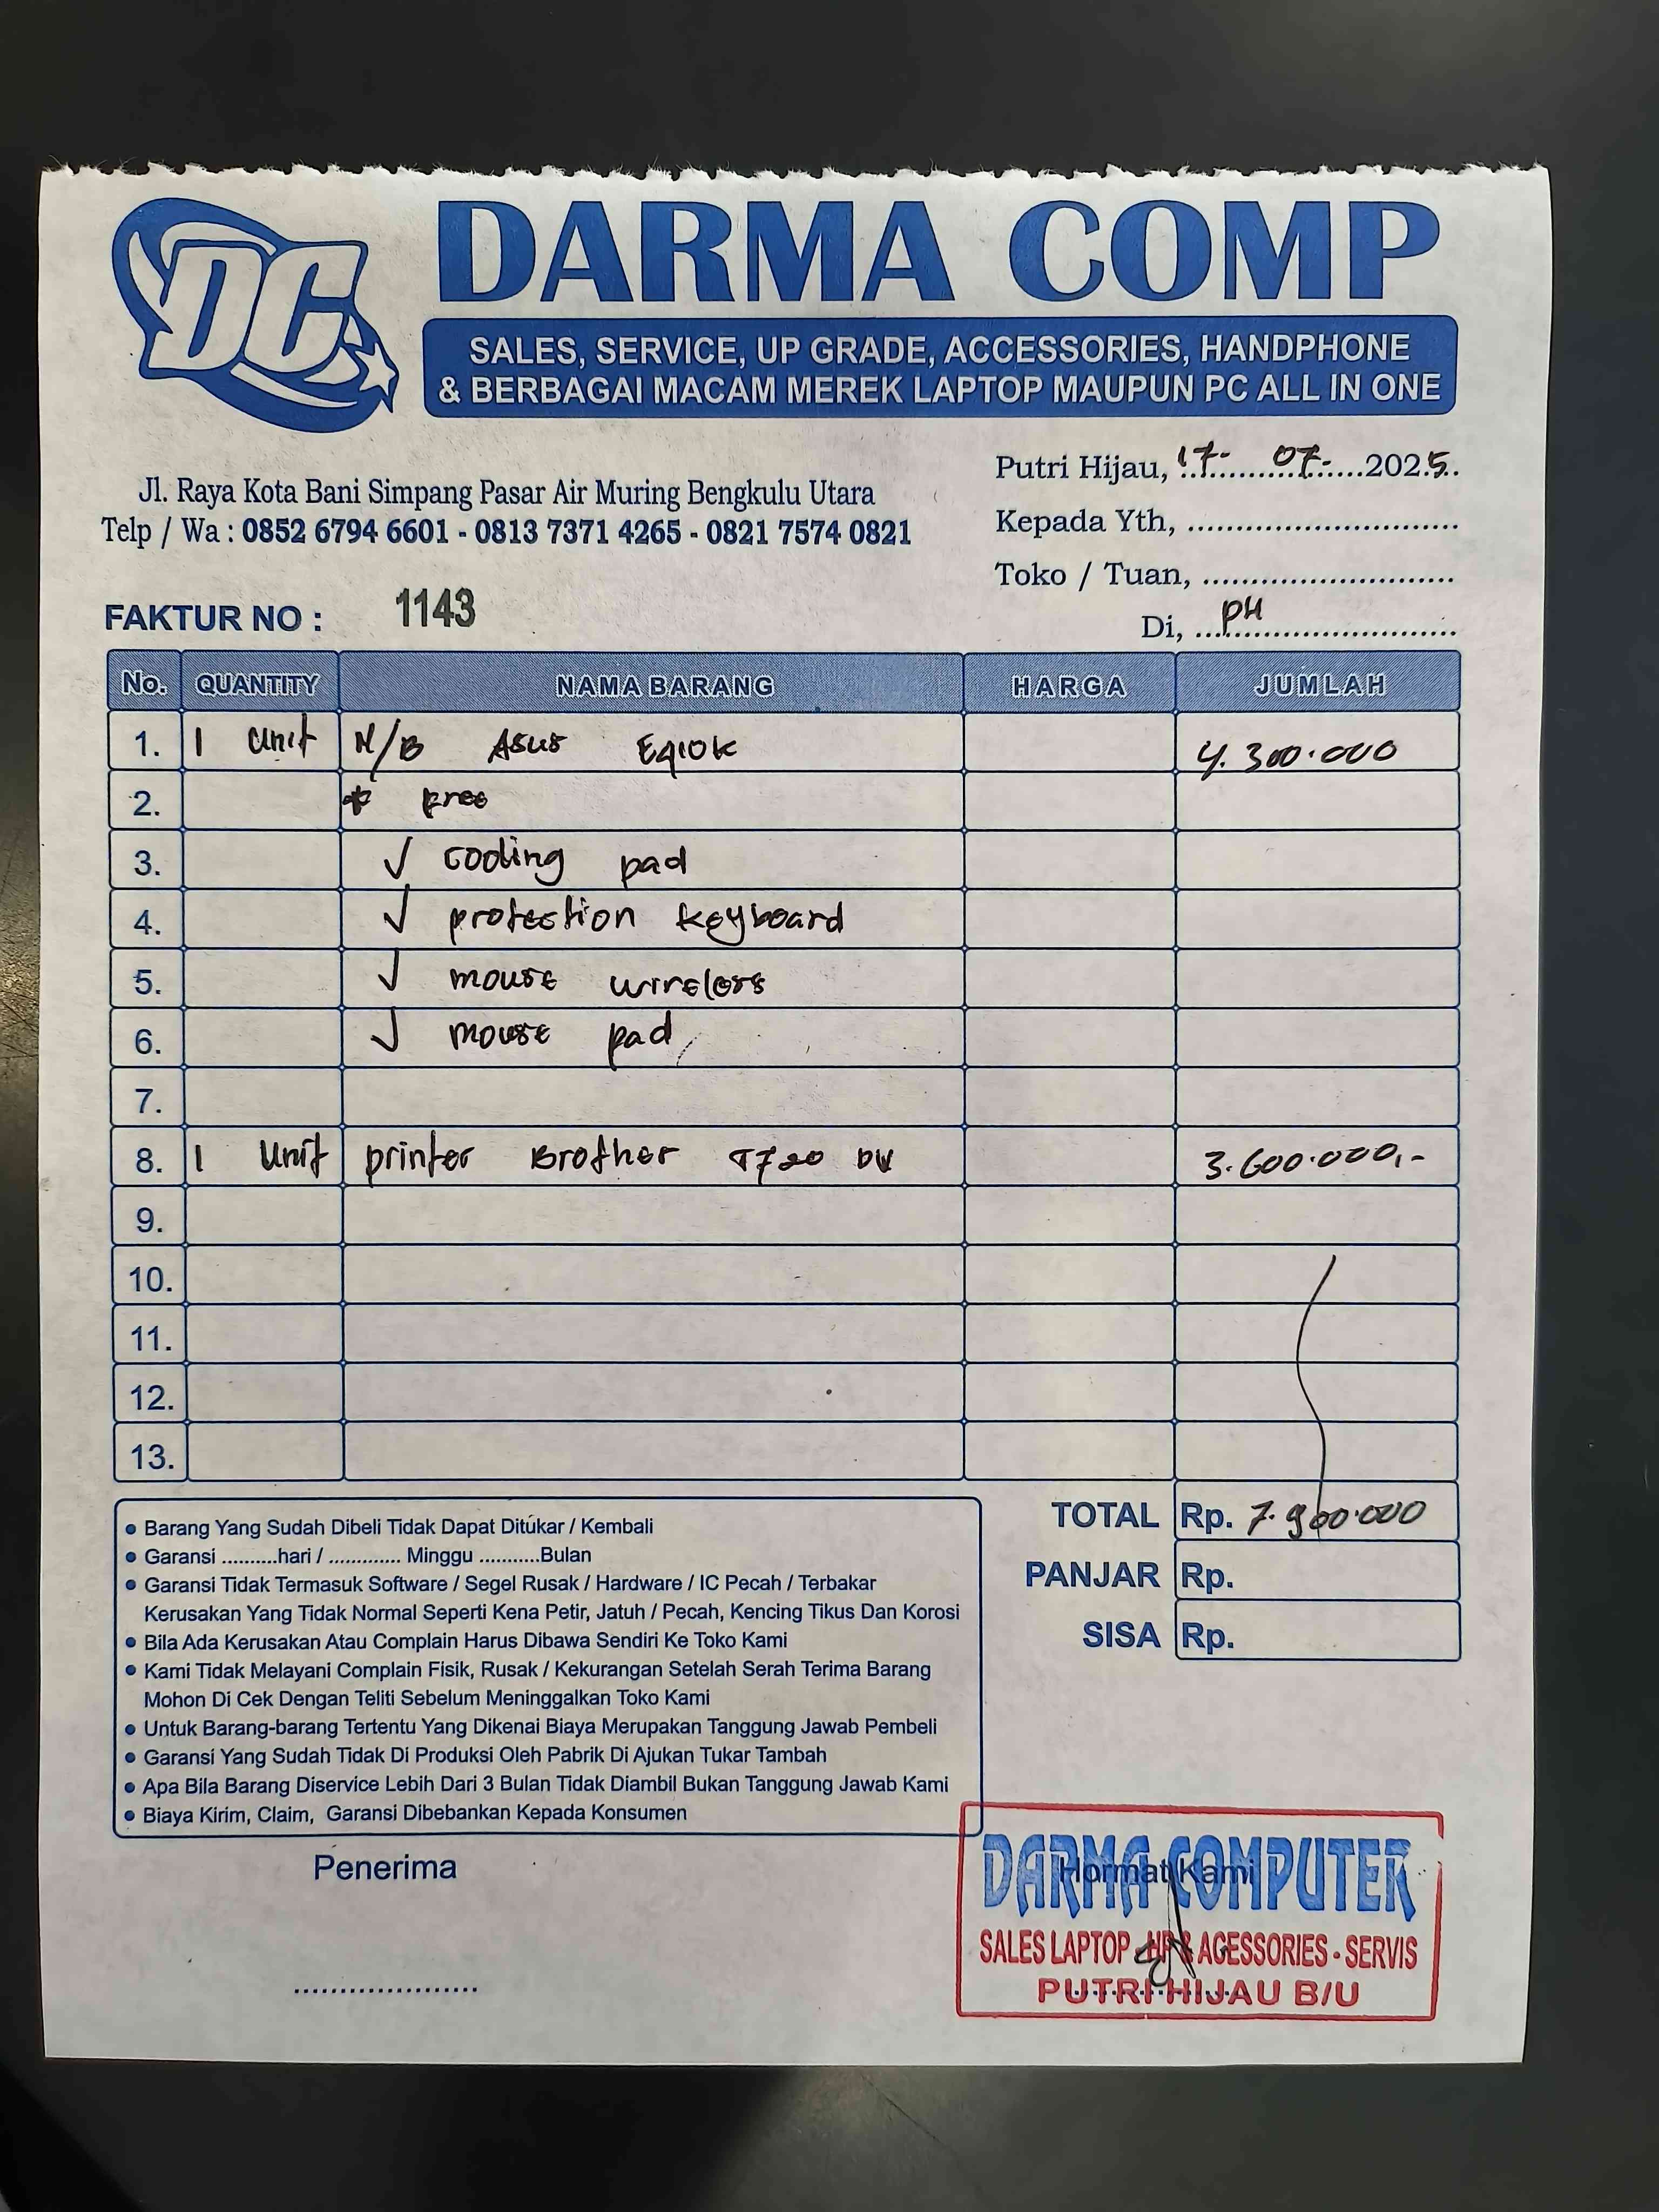 DC
DARMA COMP
SALES, SERVICE, UP GRADE, ACCESSORIES, HANDPHONE
& BERBAGAI MACAM MEREK LAPTOP MAUPUN PC ALL IN ONE
Jl. Raya Kota Bani Simpang Pasar Air Muring Bengkulu Utara
Telp / Wa : 0852 6794 6601 - 0813 7371 4265 - 0821 7574 0821
Putri Hijau, 17- 07- 2025
Kepada Yth, ............................
Toko / Tuan, ..........................
Di, PH
FAKTUR NO : 1143
No. QUANTITY NAMA BARANG HARGA JUMLAH
1. 1 Unit N/B Asus E410K 4.300.000
2. * Free
3. √ cooling pad
4. √ protection keyboard
5. √ mouse wireless
6. √ mouse pad
7.
8. 1 Unit printer Brother T720 DW 3.600.000,-
9.
10.
11.
12.
13.
TOTAL Rp. 7.900.000
PANJAR Rp.
SISA Rp.
• Barang Yang Sudah Dibeli Tidak Dapat Ditukar / Kembali
• Garansi ..........hari / ............. Minggu ...........Bulan
• Garansi Tidak Termasuk Software / Segel Rusak / Hardware / IC Pecah / Terbakar
Kerusakan Yang Tidak Normal Seperti Kena Petir, Jatuh / Pecah, Kencing Tikus Dan Korosi
• Bila Ada Kerusakan Atau Complain Harus Dibawa Sendiri Ke Toko Kami
• Kami Tidak Melayani Complain Fisik, Rusak / Kekurangan Setelah Serah Terima Barang
Mohon Di Cek Dengan Teliti Sebelum Meninggalkan Toko Kami
• Untuk Barang-barang Tertentu Yang Dikenai Biaya Merupakan Tanggung Jawab Pembeli
• Garansi Yang Sudah Tidak Di Produksi Oleh Pabrik Di Ajukan Tukar Tambah
• Apa Bila Barang Diservice Lebih Dari 3 Bulan Tidak Diambil Bukan Tanggung Jawab Kami
• Biaya Kirim, Claim, Garansi Dibebankan Kepada Konsumen
Penerima
Hormat Kami
DARMA COMPUTER
SALES LAPTOP - HP & ACESSORIES - SERVIS
PUTRI HIJAU B/U